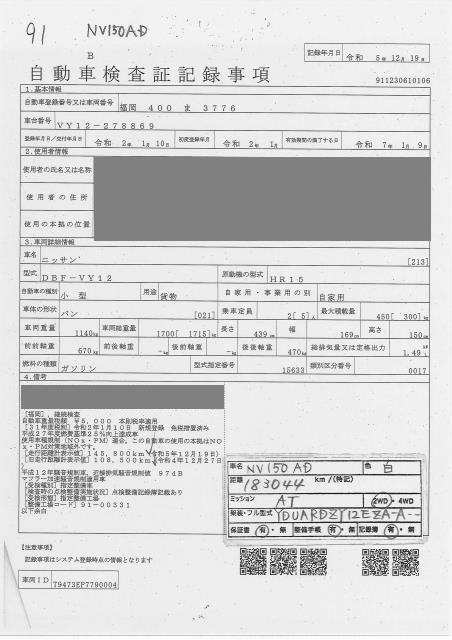 91 NV150AD
B
記録年月日 令和 5年 12月 19日
自動車検査証記録事項
911230610106
1.基本情報
自動車登録番号又は車両番号 福岡 400 ま 3776
車台番号 VY12-278869
登録年月日/交付年月日 令和 2年 1月 10日 初度登録年月 令和 2年 1月 有効期間の満了する日 令和 7年 1月 9日
2.使用者情報
使用者の氏名又は名称
使用者の住所
使用の本拠の位置
3.車両詳細情報
車名 ニッサン [213]
型式 DBF-VY12 原動機の型式 HR15
自動車の種別 小型 用途 貨物 自家用・事業用の別 自家用
車体の形状 バン [021] 乗車定員 2[ 5]人 最大積載量 450[ 300]kg
車両重量 1140kg 車両総重量 1700[ 1715]kg 長さ 439cm 幅 169cm 高さ 150cm
前前軸重 670kg 前後軸重 -kg 後前軸重 -kg 後後軸重 470kg 総排気量又は定格出力 1.49
燃料の種類 ガソリン 型式指定番号 15633 類別区分番号 0017
4.備考
[福岡],継続検査
自動車重量税額 ¥5,000 本則税率適用
[31年度税制]令和2年1月10日 新規登録 免税措置済み
平成27年度燃費基準25%向上達成車
使用車種規制(NOx・PM)適合,この自動車の使用の本拠はNO
x・PM対策地域外です。
[走行距離計表示値]145,800km(令和5年12月19日)
[旧走行距離計表示値]108,500km(令和4年12月27日
)
平成12年騒音規制車,近接排気騒音規制値 97dB
マフラー加速騒音規制適用車
[受検種別]指定整備車
[検査時の点検整備実施状況]点検整備記録簿記載あり
[受検形態]指定整備工場
[整備工場コード]91-00331
以下余白
車名 NV150 AD 色 白
距離 183044 km/(特記)
ミッション AT 2WD・4WD
架装・フル型式
保証書 有・無 整備手帳 有・無 記録簿 有・無
【注意事項】
記録事項はシステム登録時点の情報となります
車両ID T9473EP7790004